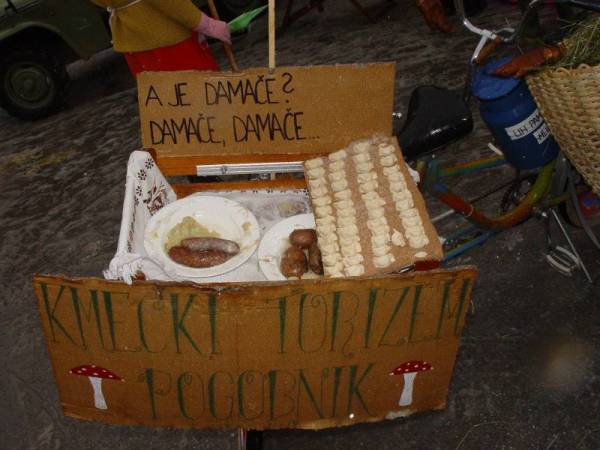 A JE DAMAČE?
DAMAČE, DAMAČE...
KMEČKI TORIZEM
POGOBNIK